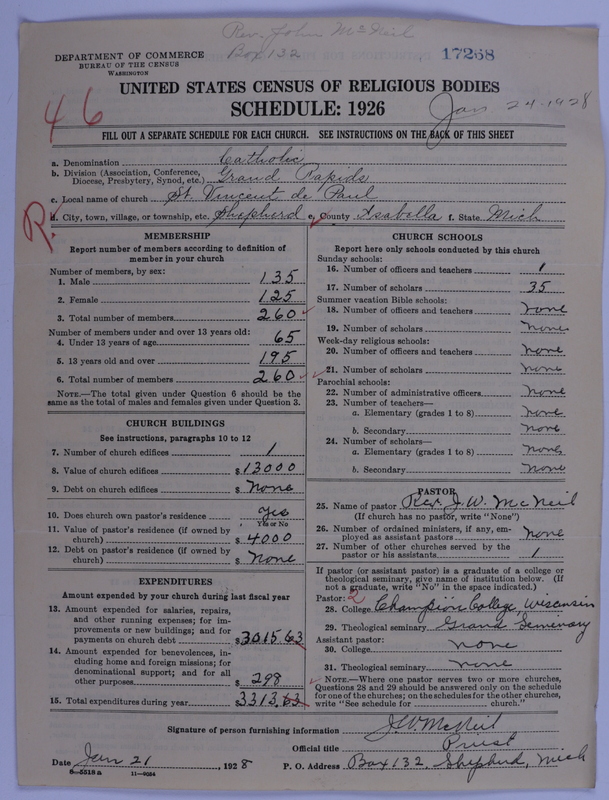 Rev. John McNeil
Box 132
17268
DEPARTMENT OF COMMERCE
BUREAU OF THE CENSUS
WASHINGTON
UNITED STATES CENSUS OF RELIGIOUS BODIES
SCHEDULE: 1926
Jan 24-1928
46
FILL OUT A SEPARATE SCHEDULE FOR EACH CHURCH. SEE INSTRUCTIONS ON THE BACK OF THIS SHEET
a. Denomination Catholic
b. Division (Association, Conference, Diocese, Presbytery, Synod, etc.) Grand Rapids
c. Local name of church St. Vincent de Paul
R.
d. City, town, village, or township, etc. Shepherd e. County Isabella f. State Mich
MEMBERSHIP
Report number of members according to definition of
member in your church
Number of members, by sex:
1. Male 135
2. Female 125
3. Total number of members 260
Number of members under and over 13 years old:
4. Under 13 years of age 65
5. 13 years old and over 195
6. Total number of members 260
NOTE.—The total given under Question 6 should be the
same as the total of males and females given under Question 3.
CHURCH BUILDINGS
See instructions, paragraphs 10 to 12
7. Number of church edifices 1
8. Value of church edifices $13000
9. Debt on church edifices $ None
10. Does church own pastor's residence yes
Yes or No
11. Value of pastor's residence (if owned by
church) $ 4000
12. Debt on pastor's residence (if owned by
church) $ None
EXPENDITURES
Amount expended by your church during last fiscal year
13. Amount expended for salaries, repairs,
and other running expenses; for im-
provements or new buildings; and for
payments on church debt $3015 63
14. Amount expended for benevolences, in-
cluding home and foreign missions; for
denominational support; and for all
other purposes $ 298
15. Total expenditures during year $3313.63
CHURCH SCHOOLS
Report here only schools conducted by this church
Sunday schools:
16. Number of officers and teachers 1
17. Number of scholars 35
Summer vacation Bible schools:
18. Number of officers and teachers none
19. Number of scholars none
Week-day religious schools:
20. Number of officers and teachers none
21. Number of scholars none
Parochial schools:
22. Number of administrative officers none
23. Number of teachers—
a. Elementary (grades 1 to 8) none
b. Secondary none
24. Number of scholars—
a. Elementary (grades 1 to 8) none
b. Secondary none
PASTOR
25. Name of pastor Rev. J. W. McNeil
(If church has no pastor, write "None")
26. Number of ordained ministers, if any, em-
ployed as assistant pastors none
27. Number of other churches served by the
pastor or his assistants 1
If pastor (or assistant pastor) is a graduate of a college or
theological seminary, give name of institution below. (If
not a graduate, write "No" in the space indicated.)
Pastor: 2
28. College Champion College, Wisconsin
29. Theological seminary Grand Seminary
Assistant pastor:
30. College none
31. Theological seminary none
NOTE.—Where one pastor serves two or more churches,
Questions 28 and 29 should be answered only on the schedule
for one of the churches; on the schedules for the other churches,
write "See schedule for church."
Signature of person furnishing information J.W. McNeil
Official title Priest
Date Jan 21, 1928 P. O. Address Box 132, Shepherd, Mich
6—5518a 11—9054